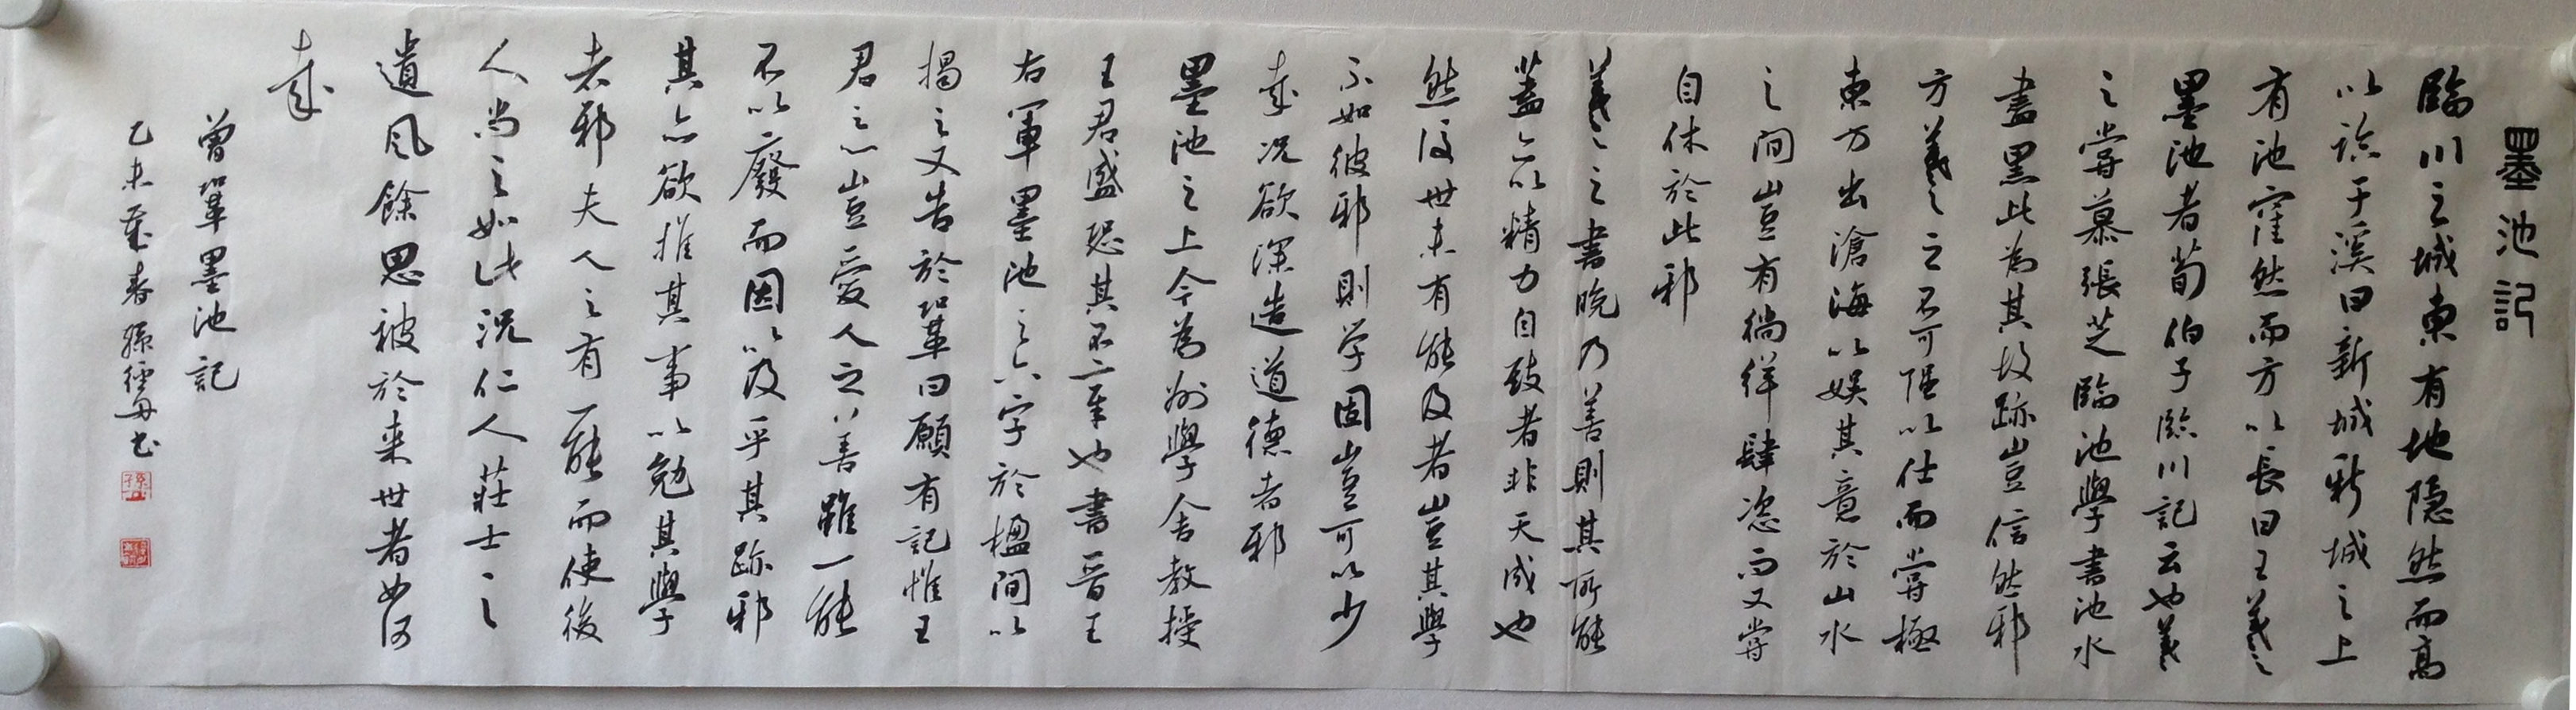 墨池記
臨川之城東有地隱然而高
以臨于溪曰新城新城之上
有池窪然而方以長曰王羲之
墨池者荀伯子臨川記云也羲
之嘗慕張芝臨池學書池水
盡黑此為其故跡豈信然邪
方羲之之不可強以仕而嘗極
東方出滄海以娛其意於山水
之間豈有徜徉肆恣而又嘗
自休於此邪
羲之之書晚乃善則其所能
蓋亦以精力自致者非天成也
然後世未有能及者豈其學
不如彼邪則学固豈可以少
哉况欲深造道德者邪
墨池之上今為州學舍教授
王君盛恐其不章也書晉王
右軍墨池之六字於楹間以
揭之又告於鞏曰願有記惟王
君之心豈愛人之善雖一能
不以廢而因以及乎其跡邪
其亦欲推其事以勉其學
者邪夫人之有一能而使後
人尚之如此况仁人莊士之
遺風餘思被於来世者如何
哉
曾鞏墨池記
乙未年春孫